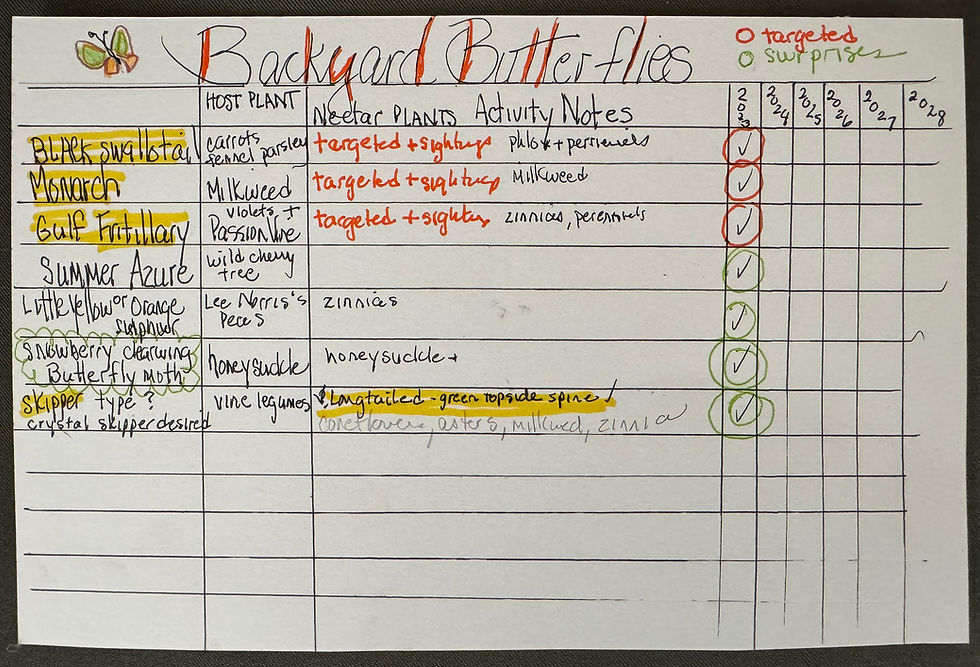 Backyard Butterflies
targeted
surprises
HOST PLANT
Nectar PLANTS Activity Notes
2023 2024 2025 2026 2027 2028
BLAck swallotail carrots fennel parsley targeted + sightings phlox + perrienels
Monarch Milkweed targeted + sightings Milkweed
Gulf Fritillary violets + PassionVine targeted + sighting zinnias, perennials
Summer Azure wild cherry tree
Little Yellow or Orange sulphur Lee Norris's Peas zinnias
Snowberry clearwing Butterfly moth honeysuckle honeysuckle +
skipper type? vine legumes Longtailed - green topside spine
crystal skipper desired coneflowers, asters, milkweed, zinnia